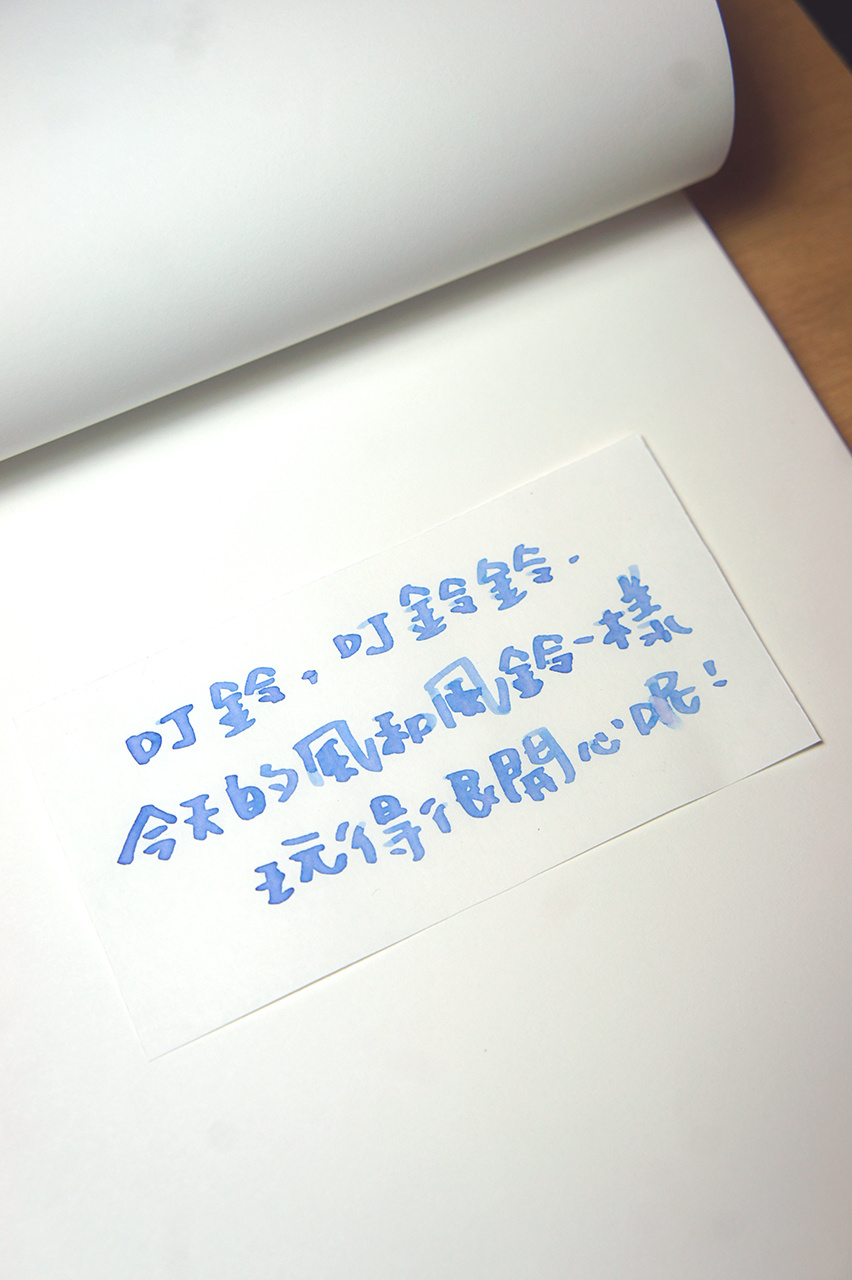 叮鈴，叮鈴鈴．
今天的風和風鈴一樣
玩得很開心呢！